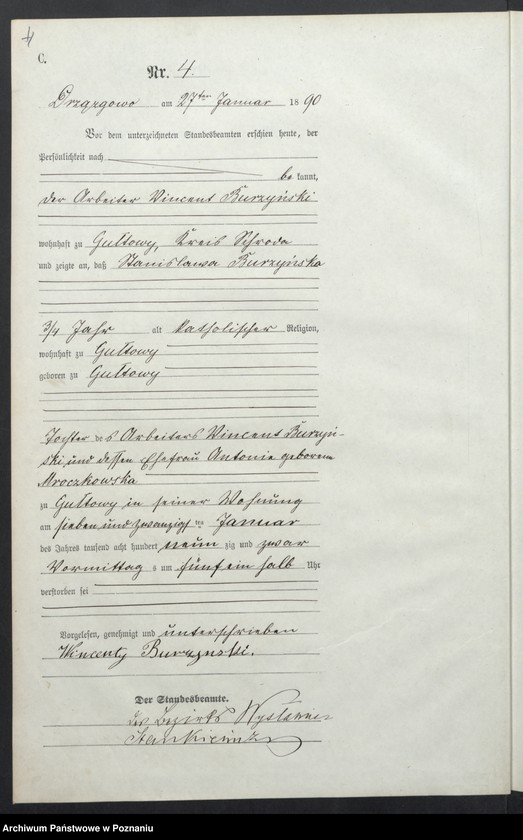 4
C.
Nr. 4.
Drzązgowo am 27ten Januar 1890
Vor dem unterzeichneten Standesbeamten erschien heute, der
Persönlichkeit nach
bekannt,
der Arbeiter Vincent Burzyński
wohnhaft zu Gułtowy, Kreis Schroda
und zeigte an, daß Stanislawa Burzyńska
3/4 Jahr alt katholischer Religion,
wohnhaft zu Gułtowy
geboren zu Gułtowy
Tochter des Arbeiters Vincent Burzyń-
ski und dessen Ehefrau Antonie geborene
Mroczkowska
zu Gułtowy in seiner Wohnung
am sieben und zwanzigsten Januar
des Jahres tausend acht hundert neunzig und zwar
Vormittags um fünf ein halb Uhr
verstorben sei
Vorgelesen, genehmigt und unterschrieben
Wincenty Burzynski.
Der Standesbeamte.
des Bezirks
Stankiewicz
Archiwum Państwowe w Poznaniu